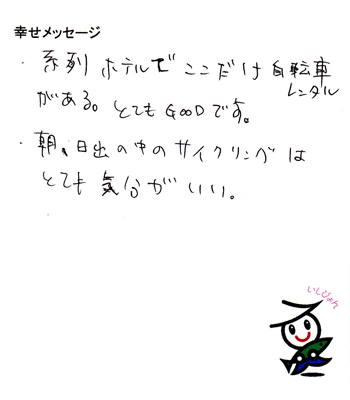 幸せメッセージ
・系列ホテルでここだけ自転車
レンタル
がある。とてもGOODです。
・朝、日出の中のサイクリングは
とても気分がいい。